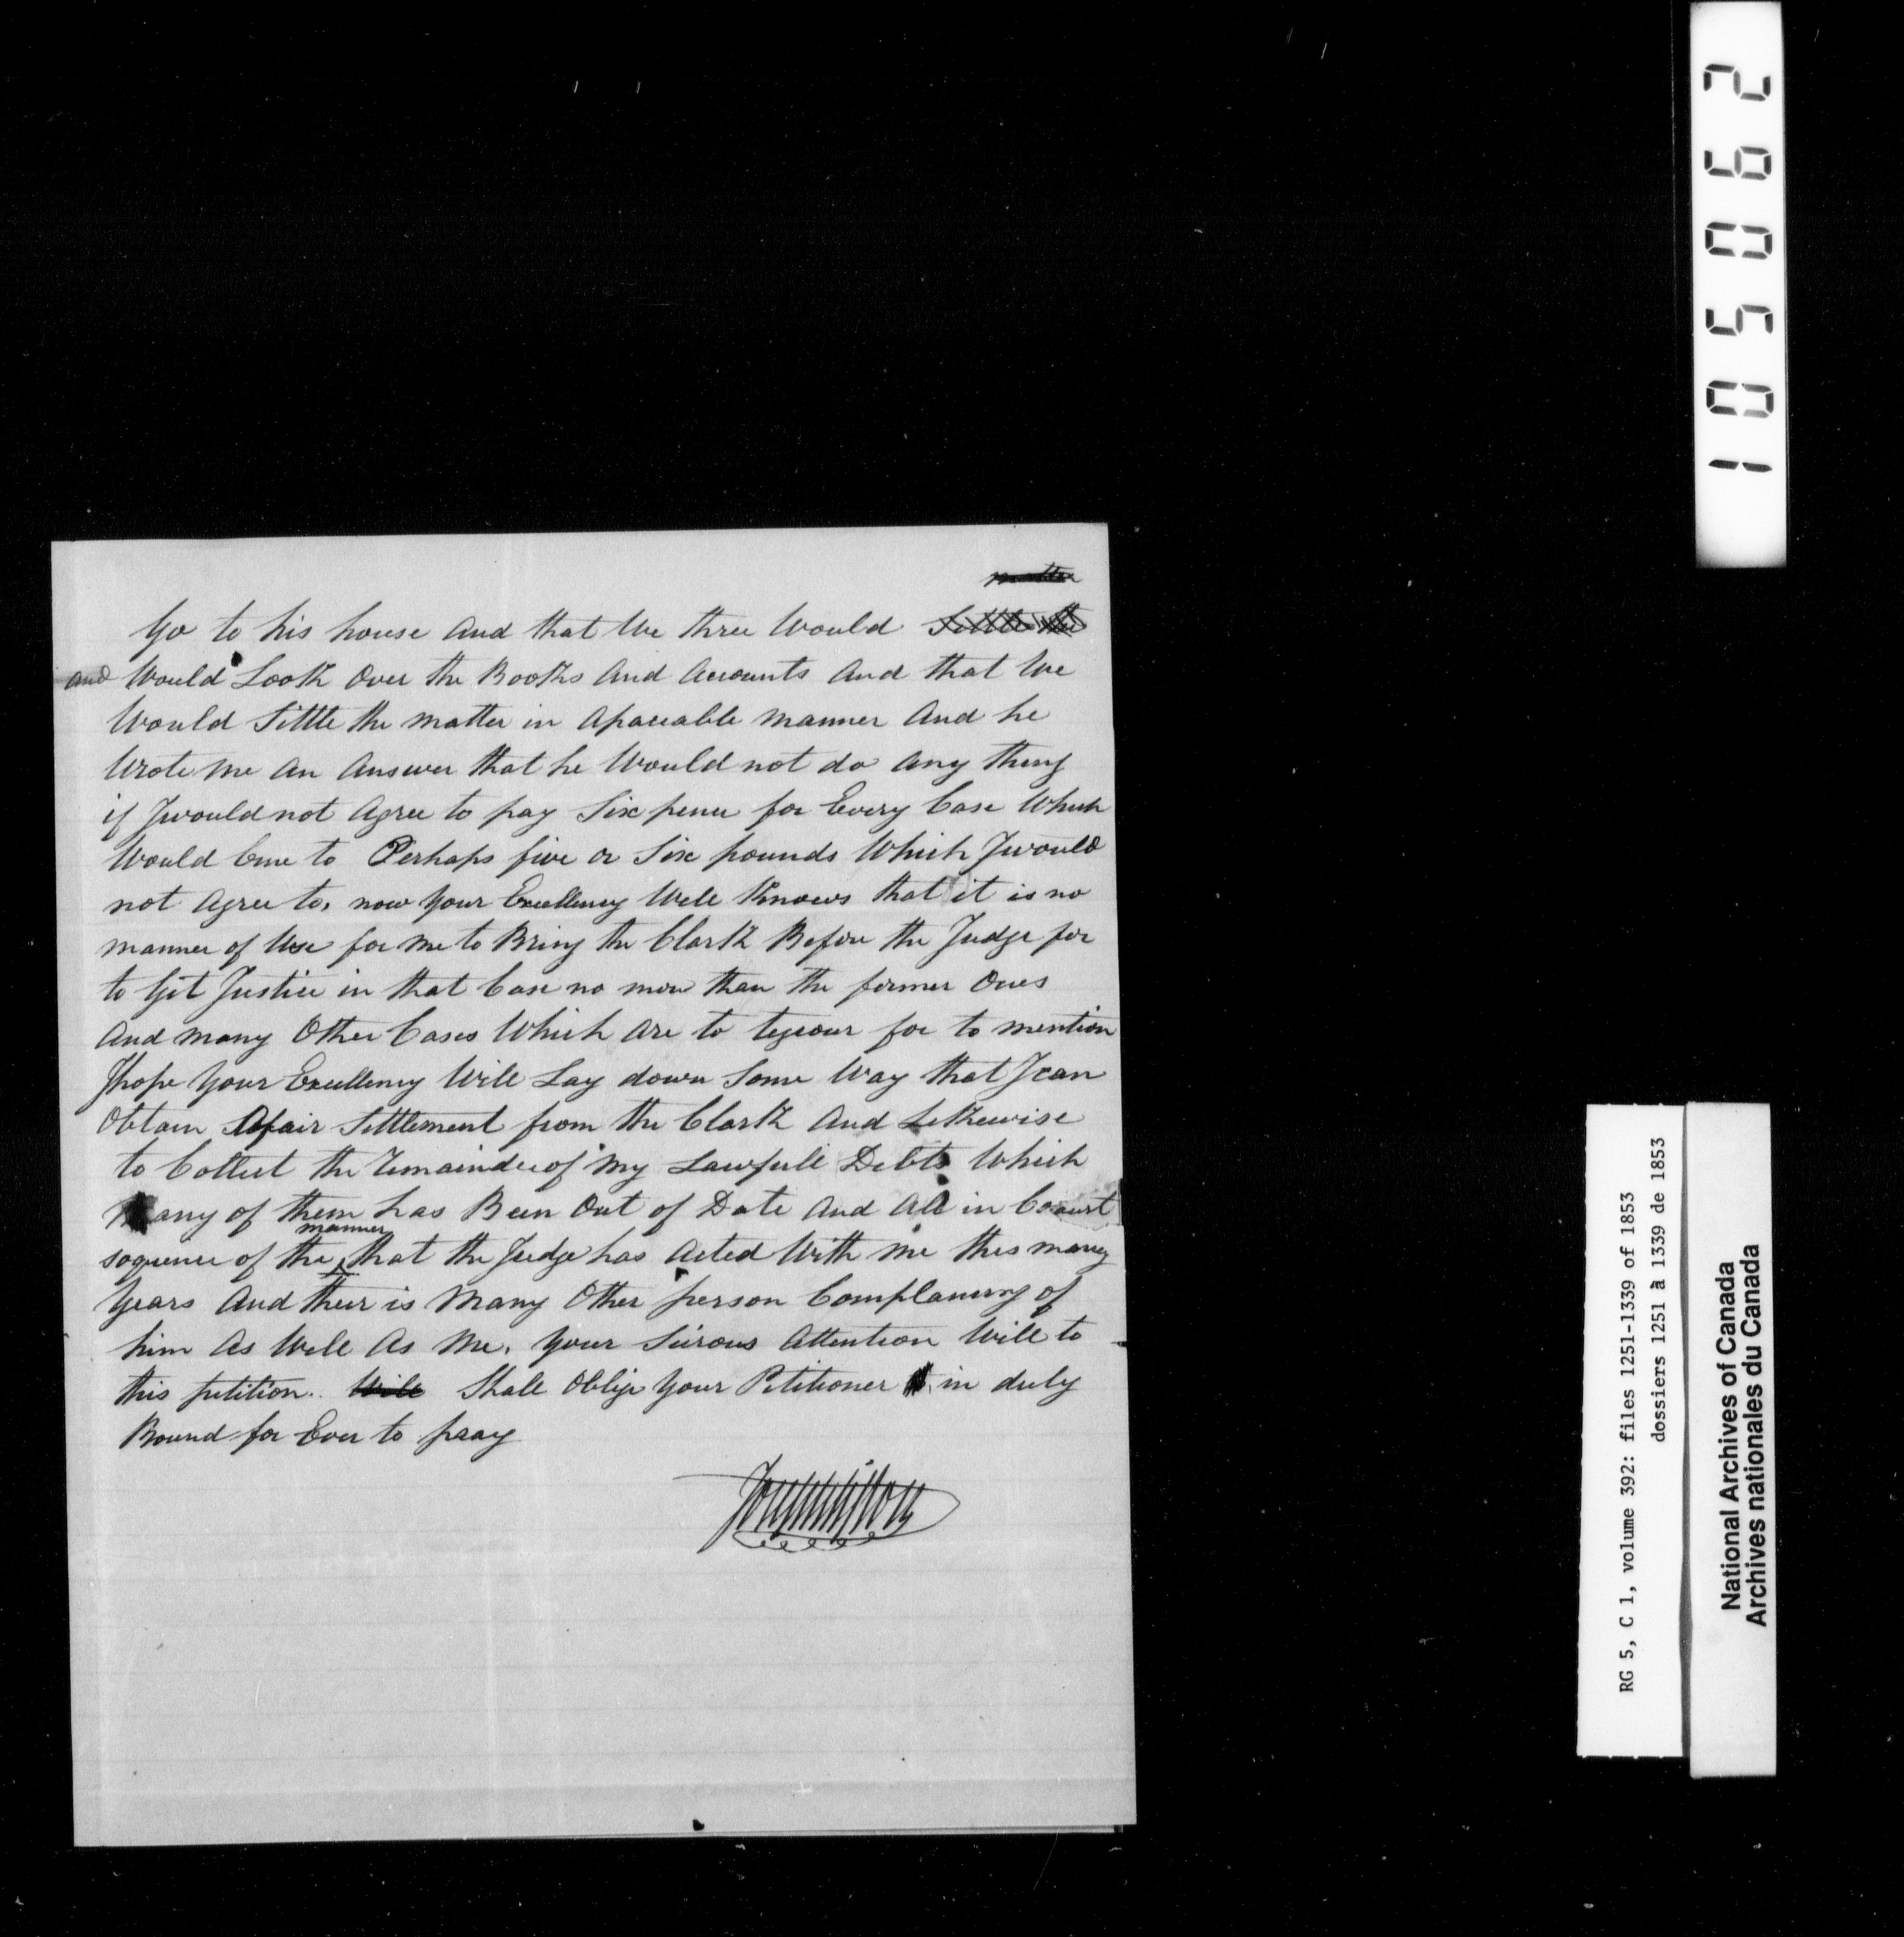 matter
Go to his house and that we three Would Settle the
and Would Look Over the Books And Accounts And that We
Would Sittle the matter in Apaceable manner And he
Wrote me An Answer that he Would not do Any thing
if Jwould not Agree to pay Six pence for Every Case Which
Would Cum to Perhaps five or Six pounds Which Jwould
not Agree to, now Your Excellency Well Knows that it is no
manner of Use for me to Bring the Clark Before the Judge for
to Git Justice in that Case no more than the former Ones
And many Other Cases Which Are to for to mention
Jhope Your Excellency Will Lay down Some Way that Jcan
Obtain Afair Settlement from the Clark And Likewise
to Collect the Remainder of my Lawfull Debts Which
Many of them has Been Out of Date And All in Co
manner
sequence of the that the Judge has Acted With me this many
Years And their is Many Other person Complaning of
him As Well As Me, Your Sirous Attention Will to
this petition. Will Shall Oblige Your Petitioner in duly
Bound for Ever to pray
105062
RG 5, C 1, volume 392: files 1251-1339 of 1853
dossiers 1251 à 1339 de 1853
National Archives of Canada
Archives nationales du Canada